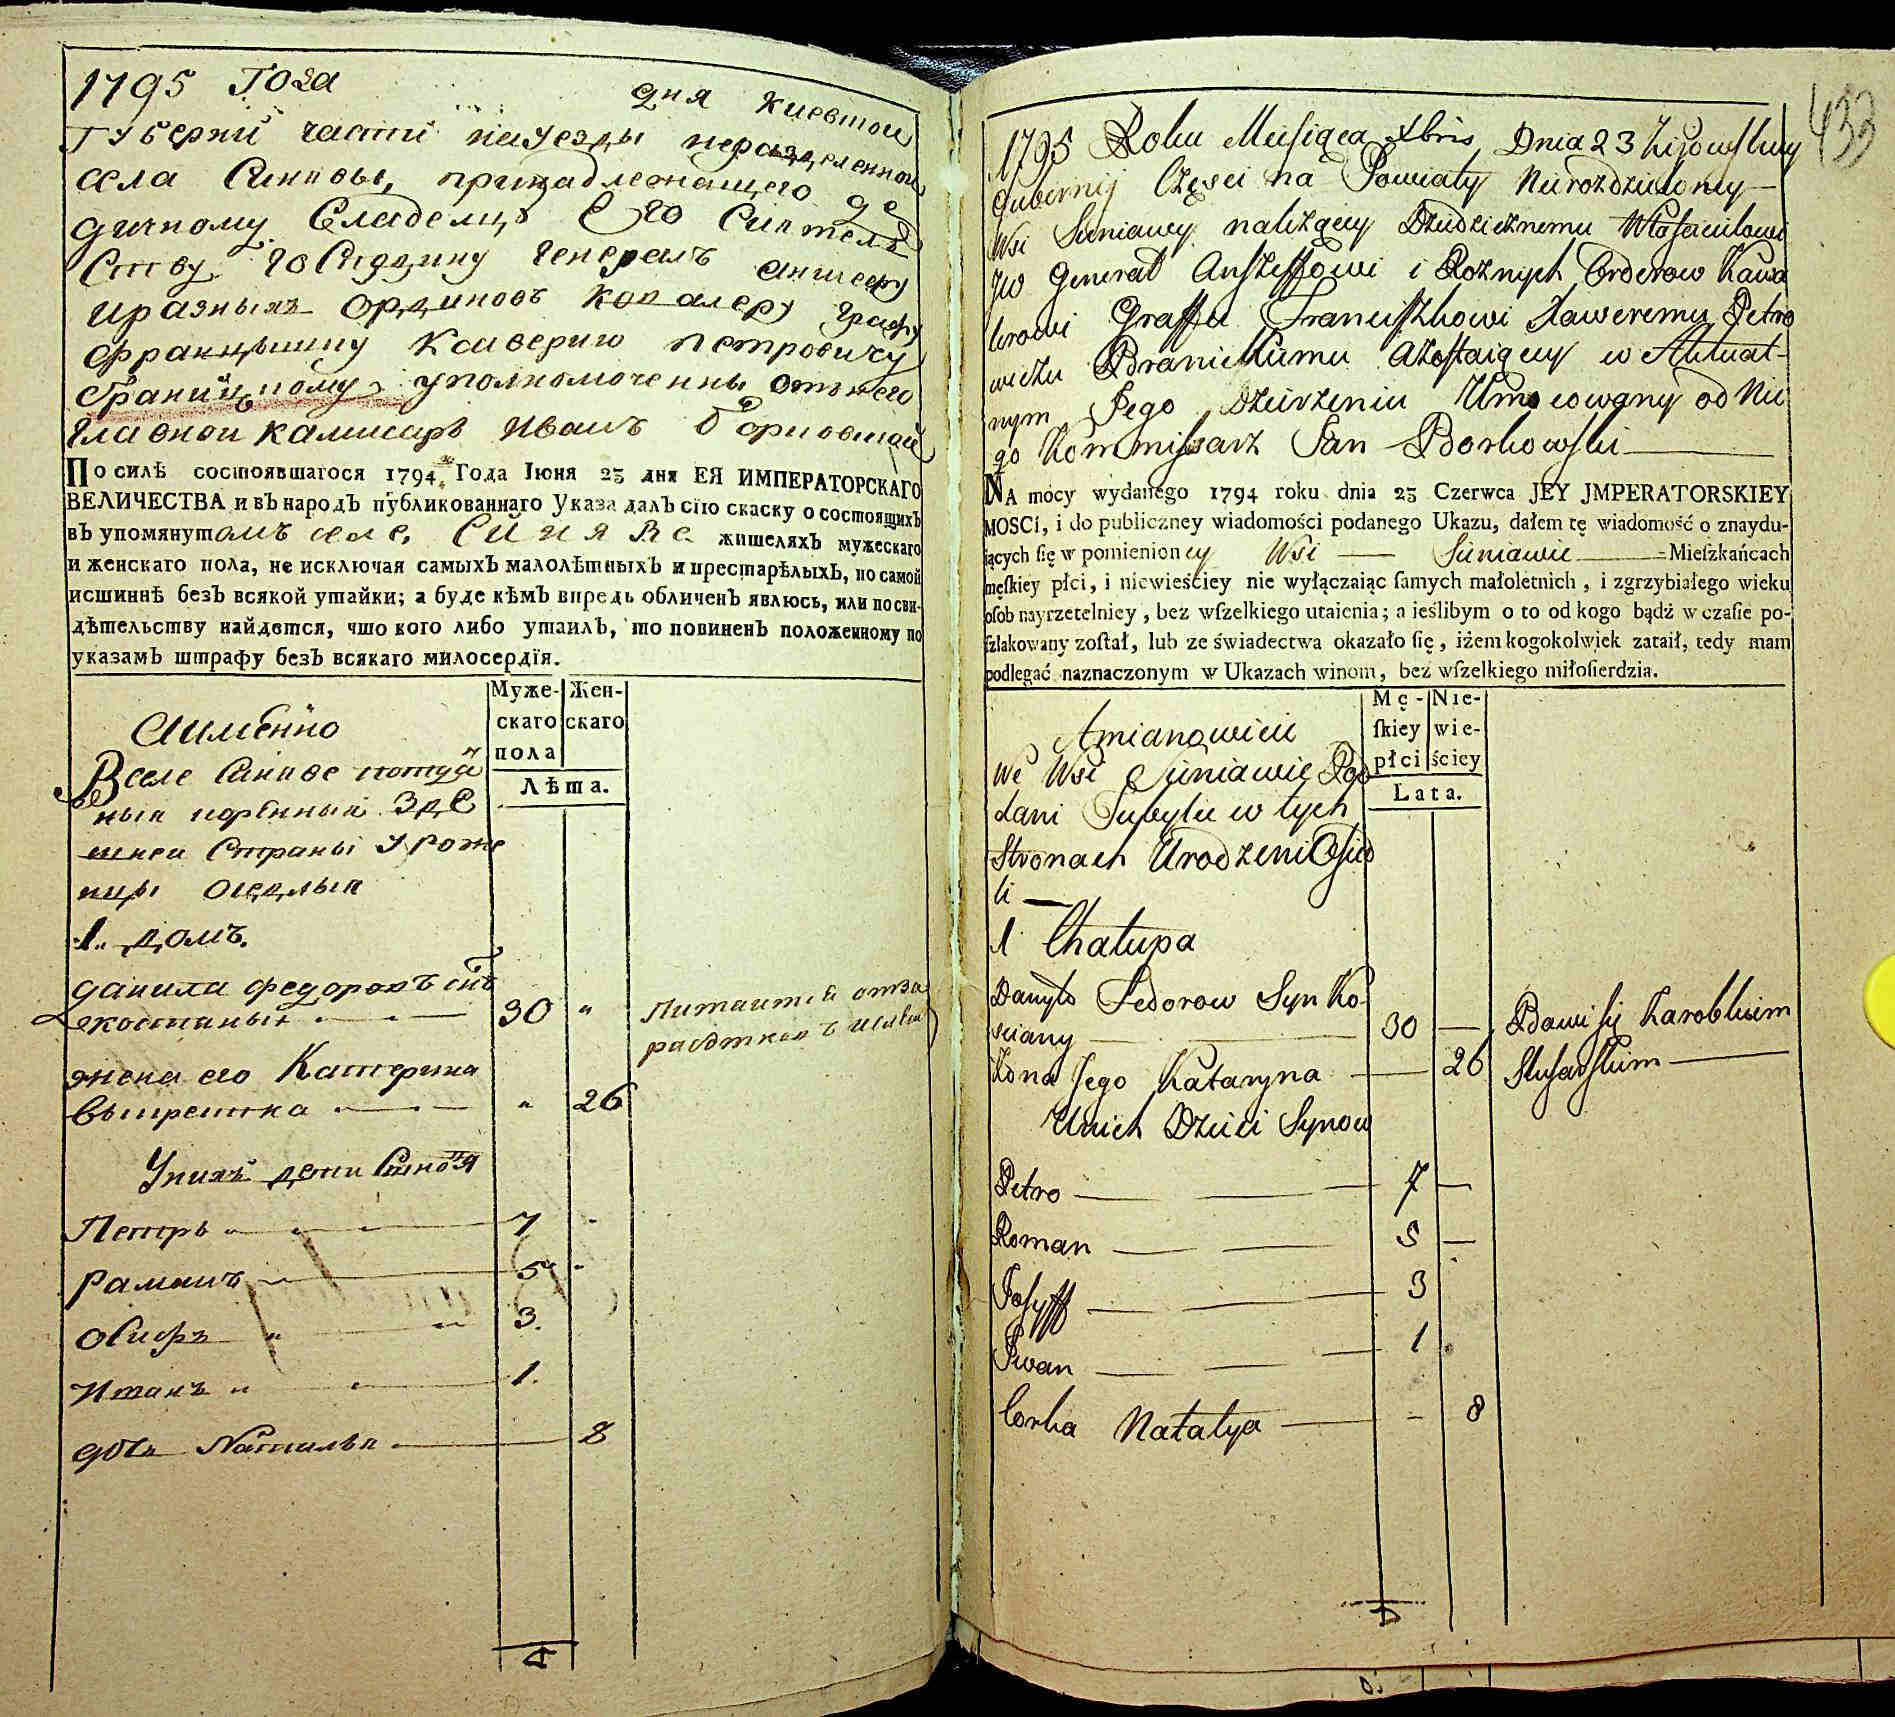 1795 Года дня Киевской
Губернии части на уезды неразделенной
села Синявы, принадлежащего де
дичному Владельцу Его Сиятель
Ству господину генералъ аншефу
и разныхъ ординовъ кавалеру графу
Францышку Ксаверию Петровичу
Браницкому, уполномоченны отънего
главной камисаръ Иванъ Борковский
По силѣ состоявшагося 1794 Года Іюня 23 дня ЕЯ ИМПЕРАТОРСКАГО
ВЕЛИЧЕСТВА и въ народъ публикованнаго Указа далъ сію скаску о состоящихъ
въ упомянутомъ селе Синяве жителяхъ мужескаго
и женскаго пола, не исключая самыхъ малолѣтныхъ и престарѣлыхъ, по самой
истиннѣ безъ всякой утайки; а буде кѣмъ впредь обличенъ явлюсь, или по сви-
дѣтельству найдется, что кого либо утаилъ, то повиненъ положенному по
указамъ штрафу безъ всякаго милосердїя.
Муже- Жен-
скаго скаго
пола
Лѣта.
Аименно
Вселе Синяве
Страны уроже
нцы оседлыя
1. домъ.
данила федоровъ снъ
30 "
жена его Катерина
" 26
Унихъ дети Синовя
Петръ 7 -
Раманъ 5 -
Осифъ 3.
1.
дочь Наталья 8
433
1795 Roku Miesiąca Xbris Dnia 23 Kijowskiey
Gubernij Częsci na Powiaty Nierozdzieloney
Wsi Siniawy należącey Dziedzicznemu Włascicielowi
JW General Anszeffowi i Roznych Orderow Kawa
lerowi Graffu Franciszkowi Xaweremu Petro
wiczu Branickiemu Azostaiącey w Aktual-
nym Jego Dzierżeniu Umocowany od Nie
go Kommissarz Jan Borkowski
NA mocy wydanego 1794 roku dnia 23 Czerwca JEY JMPERATORSKIEY
MOSCI, i do publiczney wiadomości podanego Ukazu, dałem tę wiadomość o znaydu-
iących ſię w pomienioney Wsi Siniawie Mieſzkańcach
męſkiey płci, i niewieściey nie wyłączaiąc ſamych małoletnich, i zgrzybiałego wieku
oſob nayrzetelniey, bez wſzelkiego utaienia; a ieślibym o to od kogo bądź w czaſie po-
ſzlakowany zoſtał, lub ze świadectwa okazało ſię, iżem kogokolwiek zataił, tedy mam
podlegać naznaczonym w Ukazach winom, bez wſzelkiego miłoſierdzia.
Mę- Nie-
ſkiey wie-
płci ściey
Lata.
Amianowicie
We Wsi Siniawie Pod
dani w tych
Stronach Urodzeni Osied
li
1 Chałupa
Danyło Fedorow Syn Ko-
sciany 30 — Bawi się Zarobkiem
Żona Jego Kataryna — 26
Unich Dzieci Synow
Petro 7 —
Roman 5 —
Josyff 3
Iwan 1
Corka Natalya - 8